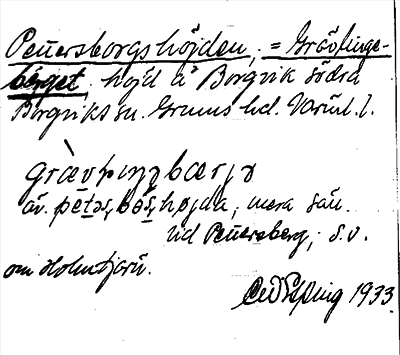 Pettersborgshöjden, = Grävlinge-
berget, höjd å Borgvik södra
Borgviks sn. Grums hd. Värml. l.
græ̀vþıŋgbærjə
äv. pè̱təʂbo̱ʂhøjda, mera sän.
vid Pettersberg, s.v.
om Holmtjärn.
1933.